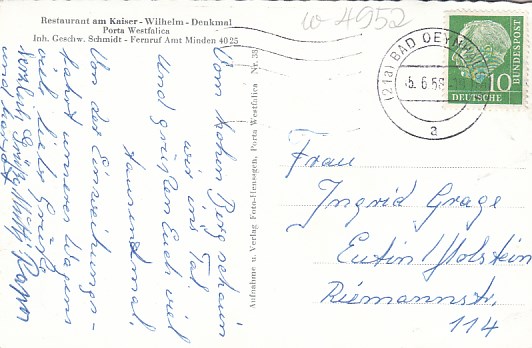 Restaurant am Kaiser-Wilhelm-Denkmal
Porta Westfalica
Inh. Geschw. Schmidt - Fernruf Amt Minden 4025
w 4952
(21a) BAD OEYNHAUSEN
5. 6. 58
a
10
DEUTSCHE
BUNDESPOST
Vom hohen Berg schauen
wir ins Tal
Und grüßen Euch viel
tausendmal.
Von der Einweihungs-
fahrt unseres Wagens
viele liebe Grüße
herzlich Grüße
und
Aufnahme u. Verlag Foto-Hensogen, Porta Westfalica Nr. 35
Frau
Ingrid Grage
Eutin/Holstein
Riemannstr.
114